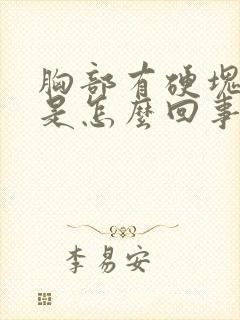 胸部有硬塊
是怎麼回事
李易安